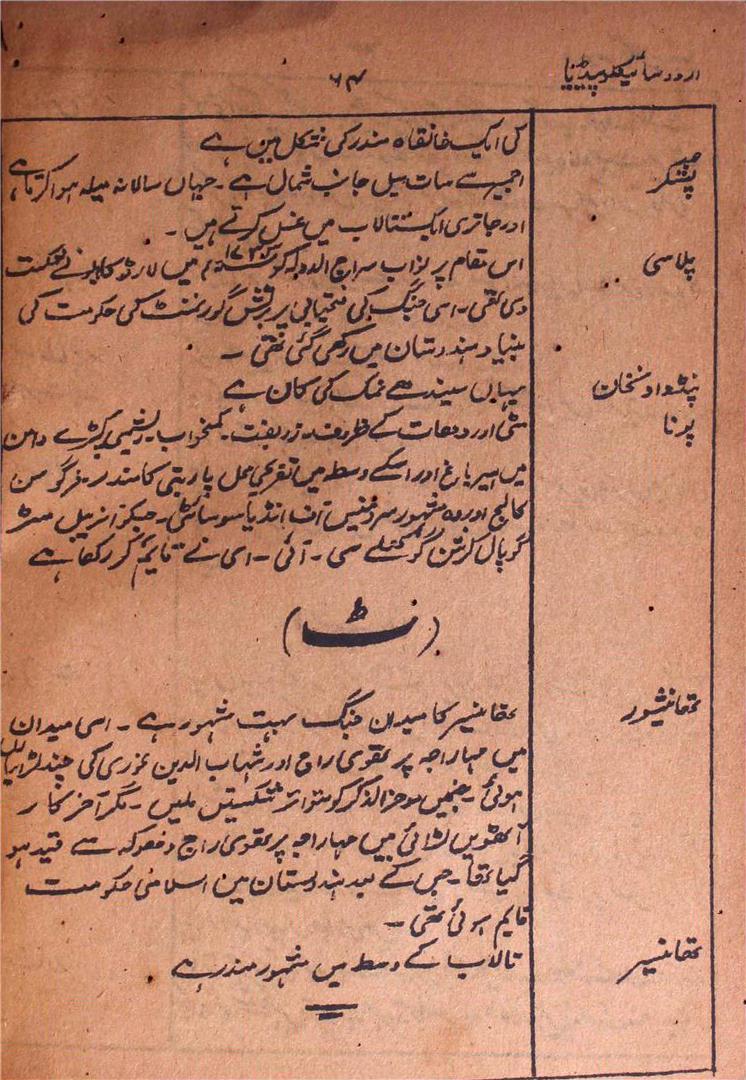 اردو سائیکلوپیڈیا
۶۴
کی ایک خانقاہ مندر کی شکل مین ہے
پشکر
اجمیر سے سات میل جانب شمال ہے ۔ جہاں سالانہ میلہ ہوا کرتا ہے
اور جاتری ایک تالاب میں غسل کرتے ہیں ۔
پلاسی
اس مقام پر نواب سراج الدولہ کو میں لارڈ کلایو نے شکست
دی تھی ۔ اسی جنگ کی فتحیابی پر برٹش گورنمنٹ کی حکومت کی
بنیاد ہندوستان میں رکھی گئی تھی ۔
پنڈدادنخان
یہاں سیندھے نمک کی کان ہے
پونا
مٹی اور دھات کے ظروف ۔ زربفت ۔ کمخواب ۔ ریشمی کپڑے دامن
میں ہیرباغ اور اسکے وسط میں تفریحی محل پاربتی کا مندر ۔ فرگوسن
کالج اور وہ مشہور سرونٹس آف انڈیا سوسائٹی ۔ جسکو انریبل مسٹر
گوپال کرشن گوکھلے سی ۔ آئی ۔ ای نے قایم کر رکھا ہے
(ٹ)
تھانیشور
تھانیسر کا میدان جنگ بہت مشہور ہے ۔ اسی میدان
میں مہاراجہ پرتھوی راج اور شہاب الدین غوری کی چند لڑائیاں
ہوئی جنمیں موخرالذکر کو متواتر شکستیں ملیں ۔ مگر آخر کار
آٹھویں لڑائی میں مہاراجہ پرتھوی راج دھوکہ سے قید ہو
گیا تھا ۔ جس کے بعد ہندوستان مین اسلامی حکومت
قایم ہوئی تھی ۔
تھانیسر
تالاب کے وسط میں مشہور مندر ہے